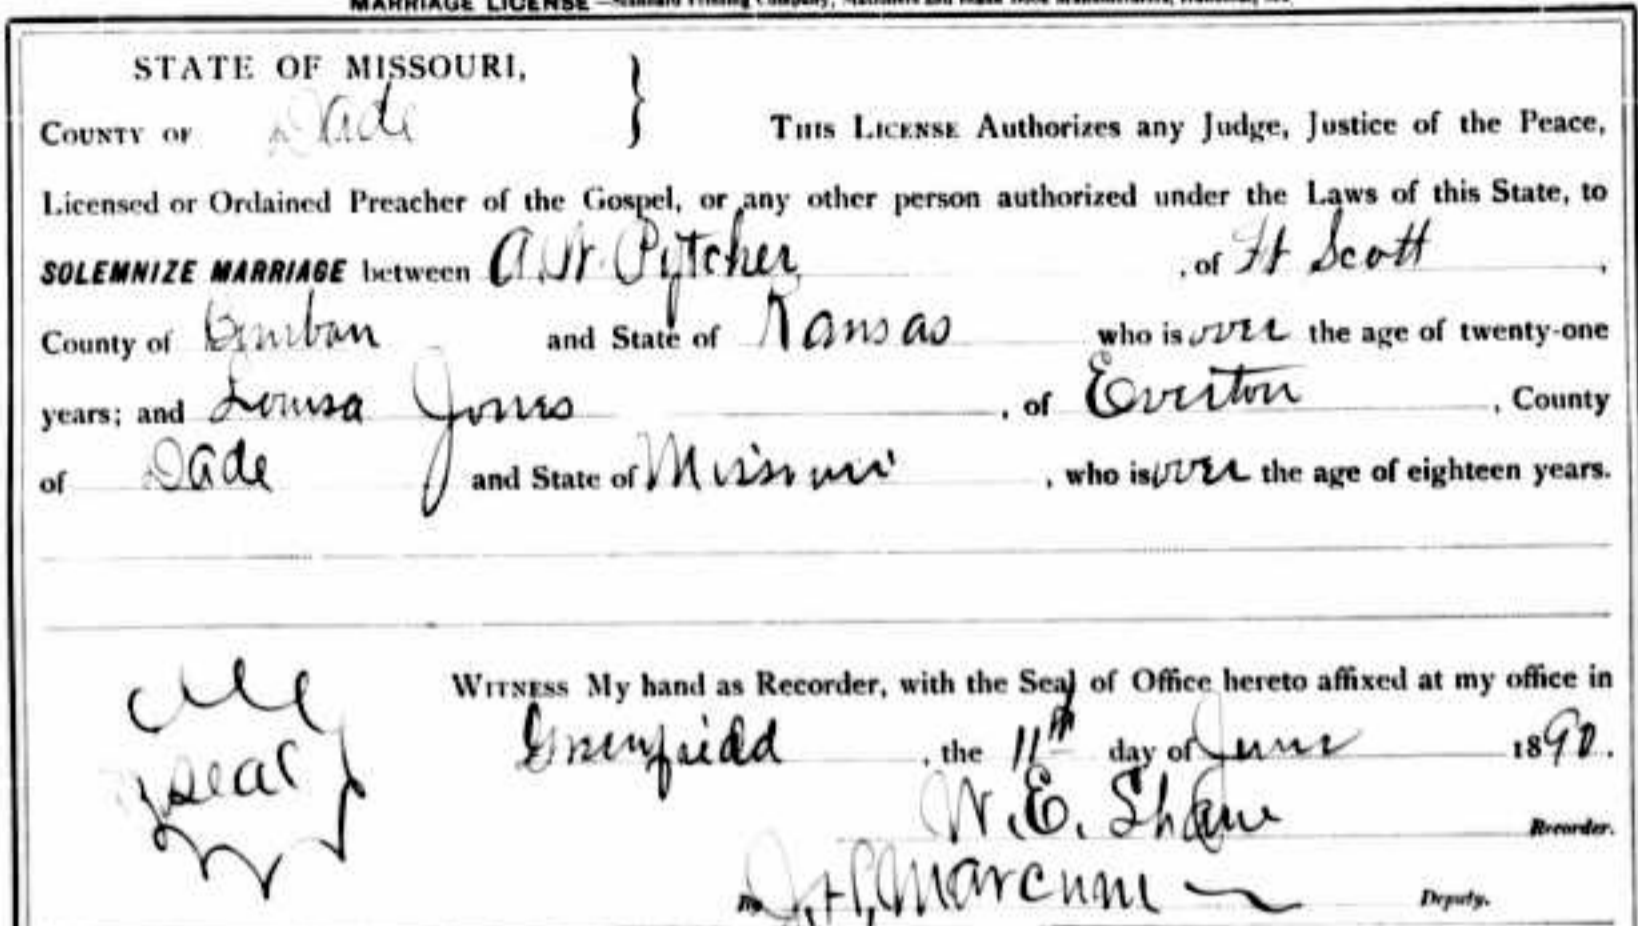 MARRIAGE LICENSE
STATE OF MISSOURI,
COUNTY OF Dade } THIS LICENSE Authorizes any Judge, Justice of the Peace,
Licensed or Ordained Preacher of the Gospel, or any other person authorized under the Laws of this State, to
SOLEMNIZE MARRIAGE between A.W. Pytcher, of Ft Scott,
County of Bourbon and State of Kansas who is over the age of twenty-one
years; and Louisa Jones, of Everton, County
of Dade and State of Missouri, who is over the age of eighteen years.
WITNESS My hand as Recorder, with the Seal of Office hereto affixed at my office in
seal
Greenfield, the 11th day of June 1890.
W. E. Shaw Recorder.
Marcum Deputy.